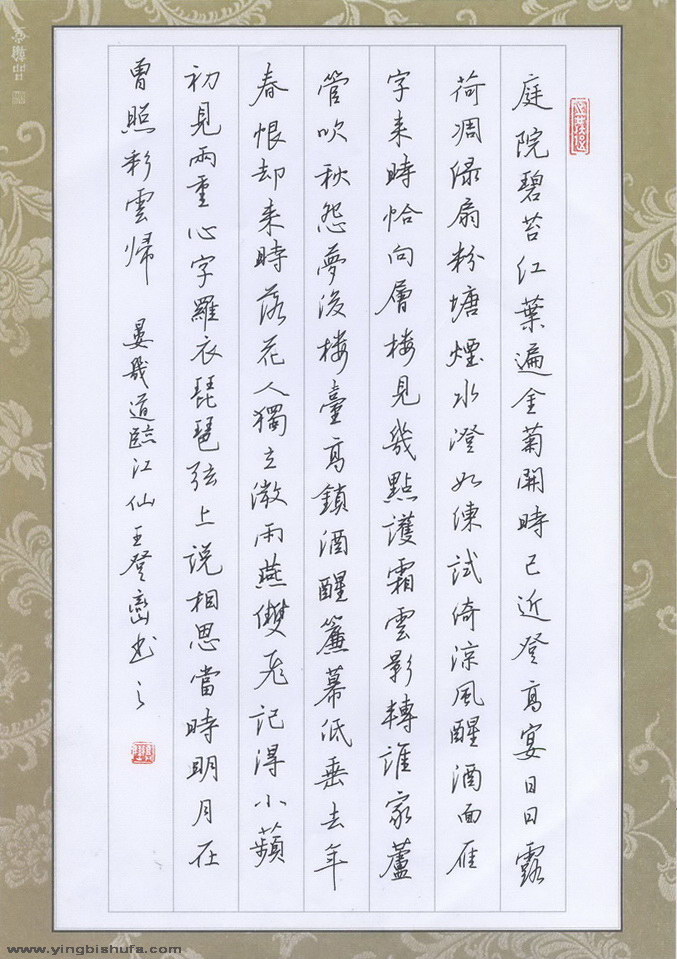 庭院碧苔红葉遍金菊開時已近登高宴日日露
荷凋绿扇粉塘煙水澄如練試倚涼風醒酒面雁
字来時恰向層楼見幾點護霜雲影轉誰家蘆
管吹秋怨夢後楼臺高鎖酒醒簾幕低垂去年
春恨却来時落花人獨立微雨燕雙飛记得小蘋
初見兩重心字羅衣琵琶弦上说相思當時明月在
曾照彩雲歸 晏幾道臨江仙王登巒书之
www.yingbishufa.com